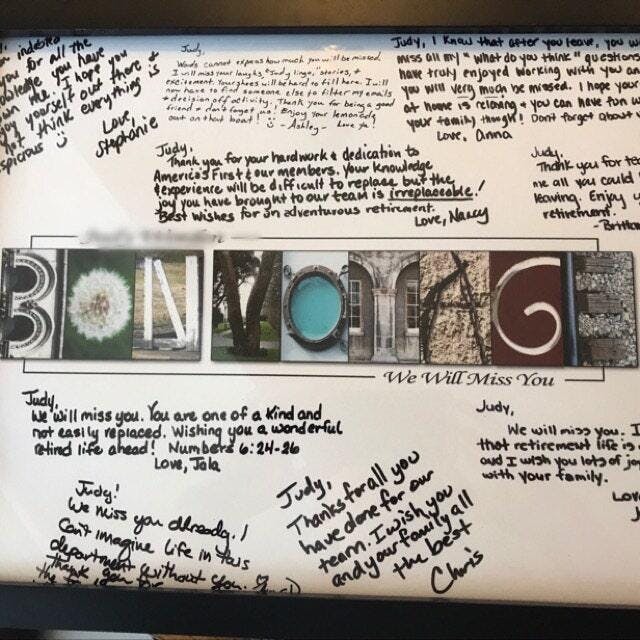 indebted
you for all the
you have
me. I hope you
enjoy yourself out there &
not think everything is
Love,
Stephanie
Judy,
Words cannot express how much you will be missed.
I will miss your laughs, "Judy lingo," stories, &
excitement. Your shoes will be hard to fill here. I will
now have to find someone else to filter my emails
& decision off activity. Thank you for being a good
friend & don't forget us! Enjoy your lemonade
out on that boat!
- Ashley - Love ya!
Judy, I know that after you leave, you w
miss all my "what do you think" questions
have truly enjoyed working with you a
you will very much be missed. I hope your
at home is relaxing & you can have fun w
your family though! Don't forget about u
Love, Anna
Judy,
Thank you for your hard work & dedication to
America's First & our members. Your knowledge
& experience will be difficult to replace but the
joy you have brought to our team is irreplaceable!
Best wishes for an adventurous retirement.
Love, Nancy
Judy,
Thank you for te
me all you could
leaving. Enjoy y
retirement.
-Brittan
BON VOYAGE
We Will Miss You
Judy,
We will miss you. You are one of a kind and
not easily replaced. Wishing you a wonderful
retired life ahead! Numbers 6:24-26
Love, Jala
Judy,
We will miss you. I
that retirement life is
and I wish you lots of jo
with your family.
Love
J
Judy!
We miss you already!
Can't imagine life in this
department without you.
Thank you for
Judy,
Thanks for all you
have done for our
team. I wish you
and your family all
the best
Chris